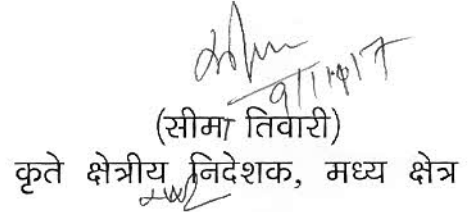 (सीमा तिवारी)
कृते क्षेत्रीय निदेशक, मध्य क्षेत्र